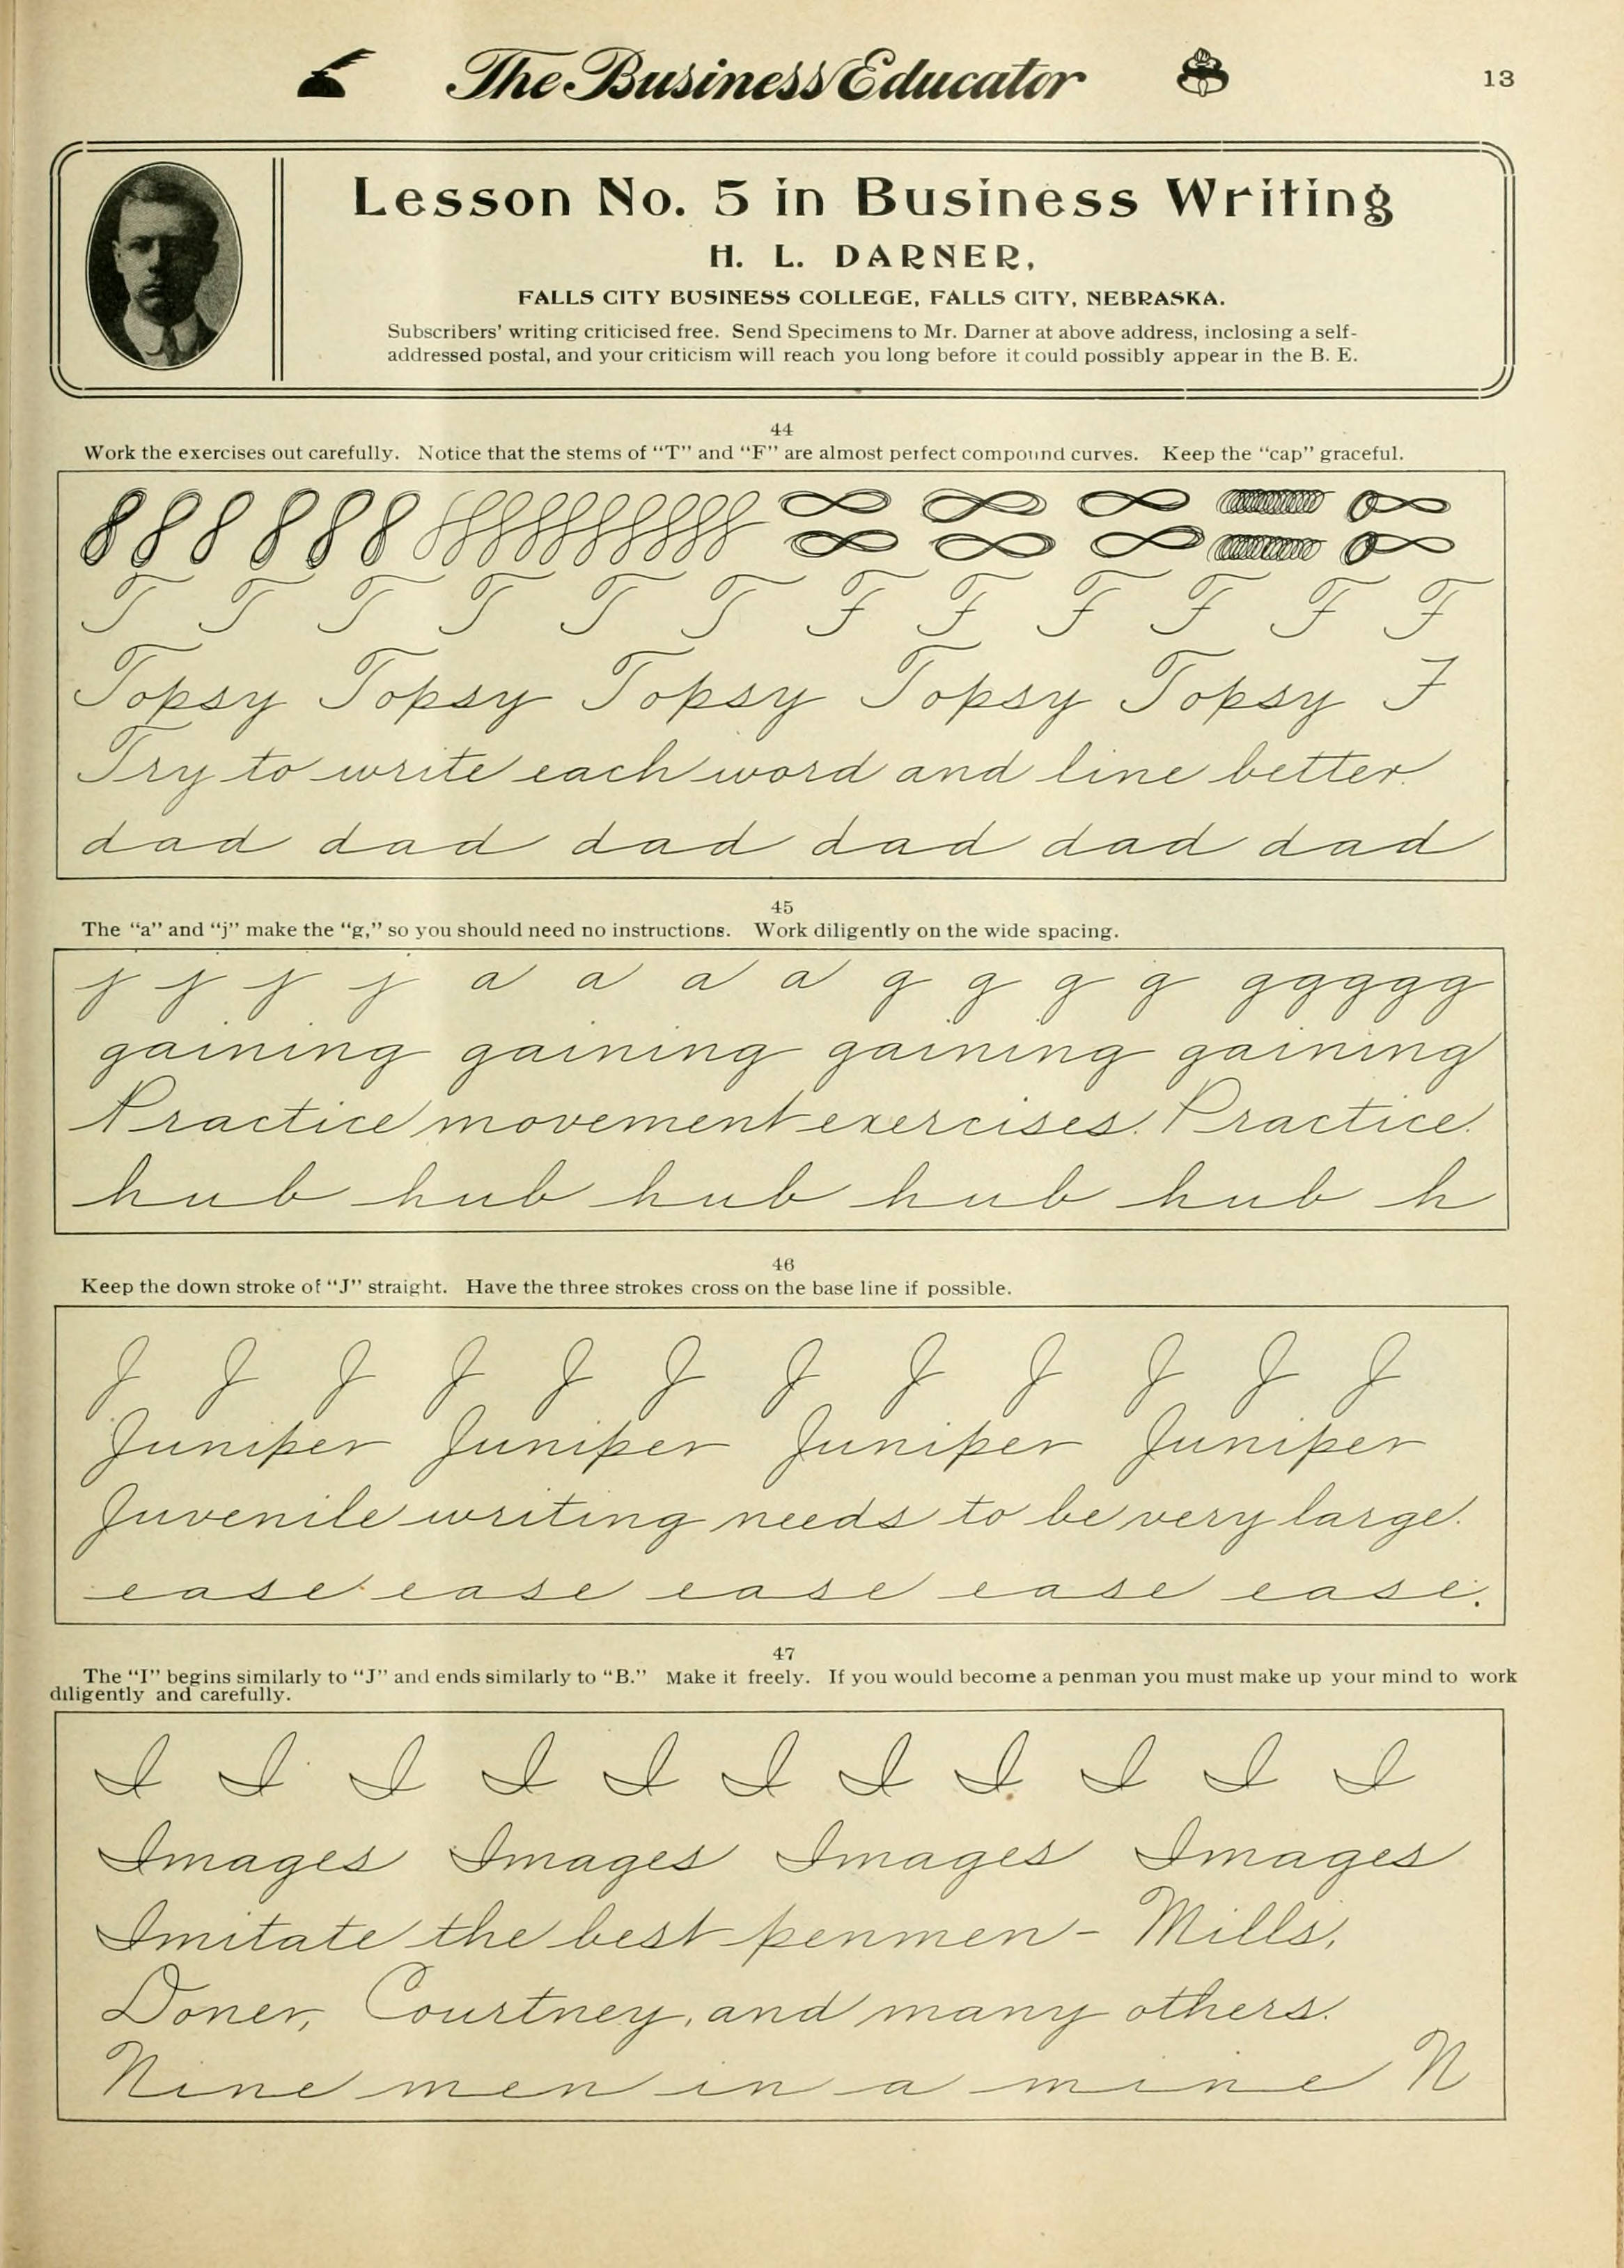 The Business Educator
13
Lesson No. 5 in Business Writing
H. L. DARNER,
FALLS CITY BUSINESS COLLEGE, FALLS CITY, NEBRASKA.
Subscribers' writing criticised free. Send Specimens to Mr. Darner at above address, inclosing a self-
addressed postal, and your criticism will reach you long before it could possibly appear in the B. E.
44
Work the exercises out carefully. Notice that the stems of "T" and "F" are almost perfect compound curves. Keep the "cap" graceful.
T T T T T T F F F F F F
Topsy Topsy Topsy Topsy Topsy F
Try to write each word and line better.
dad dad dad dad dad dad
45
The "a" and "j" make the "g," so you should need no instructions. Work diligently on the wide spacing.
j j j j a a a a g g g g ggggg
gaining gaining gaining gaining
Practice movement exercises. Practice.
hub hub hub hub hub h
46
Keep the down stroke of "J" straight. Have the three strokes cross on the base line if possible.
J J J J J J J J J J J J
Juniper Juniper Juniper Juniper
Juvenile writing needs to be very large.
ease ease ease ease ease.
47
The "I" begins similarly to "J" and ends similarly to "B." Make it freely. If you would become a penman you must make up your mind to work
diligently and carefully.
I I I I I I I I I I I
Images Images Images Images
Imitate the best penmen- Mills,
Doner, Courtney, and many others.
Nine men in a mine N